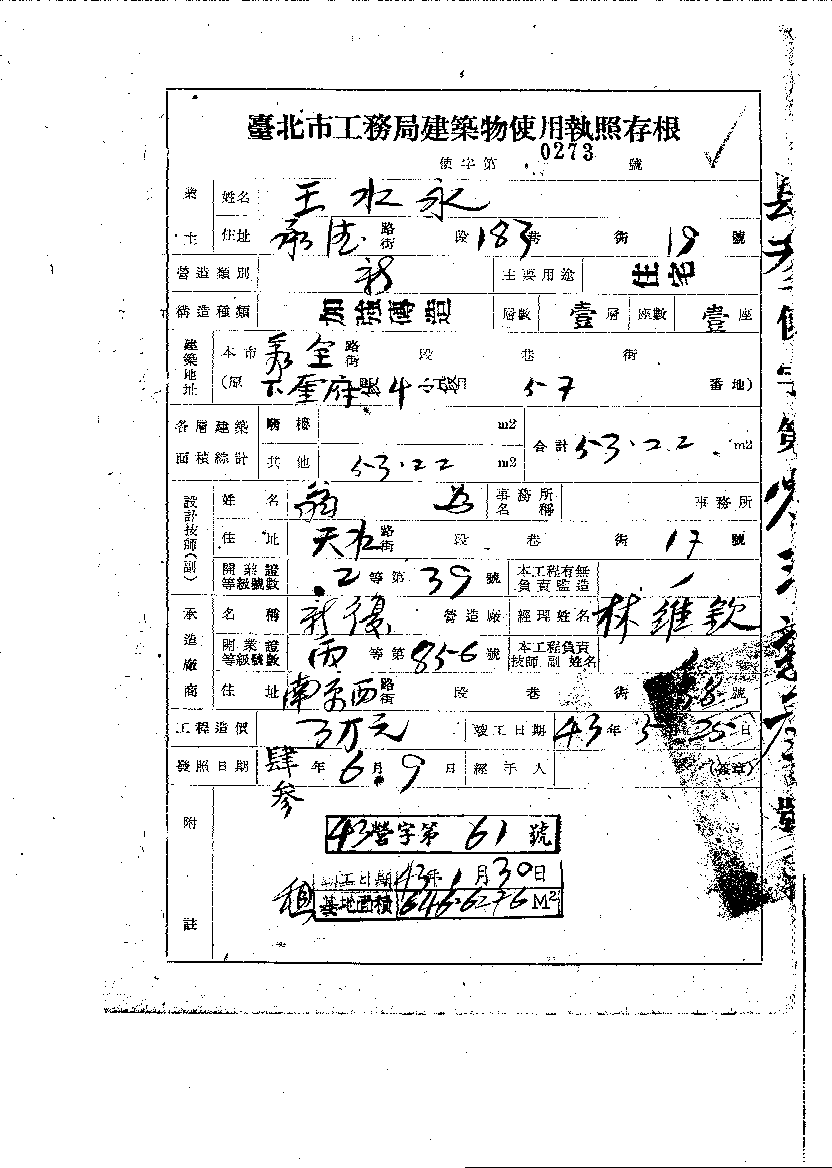 臺北市工務局建築物使用執照存根
使字第 0273 號
業主 姓名 王水永
住址 承德 路街 段 183 巷 街 19 號
營造類別 新 主要用途 住宅
構造種類 加強磚造 層數 壹 層 座數 壹 座
建築地址 本市 路街 段 巷 街
(原 下奎府 57 番地)
各層建築面積綜計 騎樓 m2 合計 53.22 m2
其他 53.22 m2
設計技師(副) 姓名 翁 事務所名稱 事務所
住址 天水 路街 段 巷 街 17 號
開業證等級號數 2 等第 39 號 本工程有無負責監造
承造廠商 名稱 新復 營造廠 經理姓名 林維欽
開業證等級號數 丙 等第 856 號 本工程負責技師副姓名
住址 南京西 路街 段 巷 街 58 號
工程造價 3万元 竣工日期 43年 5 25日
發照日期 肆參 年 6月 9 日 經手人 (簽章)
附註
43營字第 61 號
開工日期 43年 1月 30日
基地面積 646.6276 M2